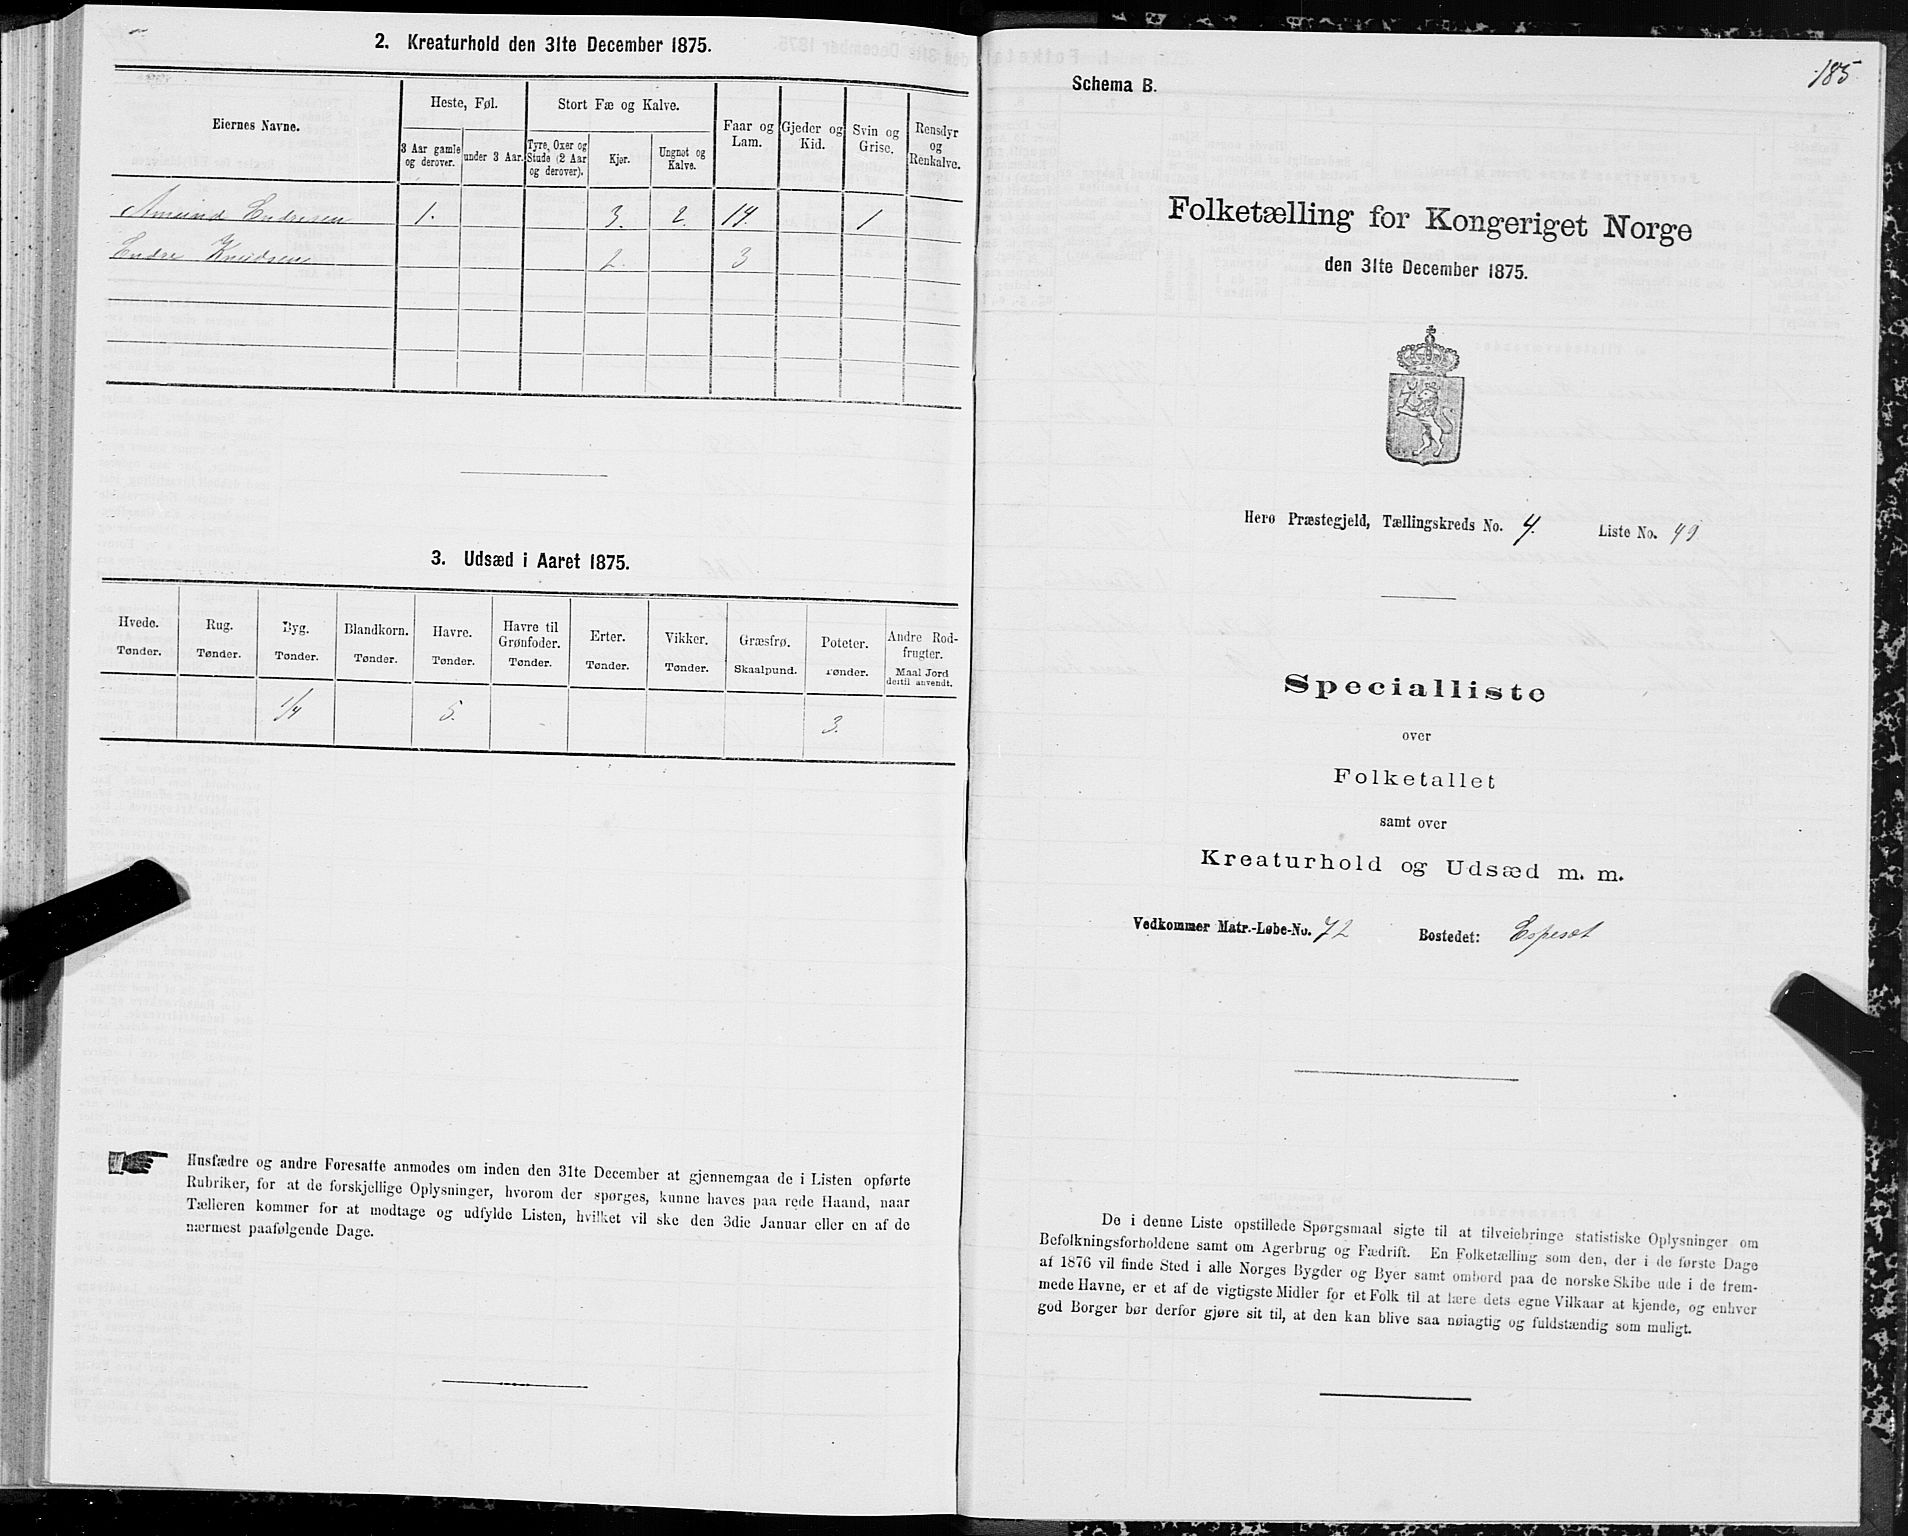 2. Kreaturhold den 31te December 1875.
Eiernes Navne.
Heste, Føl.
Stort Fæ og Kalve.
Faar og Lam.
Gjeder og Kid.
Svin og Grise.
Rensdyr og Renkalve.
3 Aar gamle og derover.
under 3 Aar.
Tyre, Oxer og Stude (2 Aar og derover).
Kjør.
Ungnøt og Kalve.
Amund Endresen 1. 3. 2. 14. 1
Endre Knudsen 2. 3
3. Udsæd i Aaret 1875.
Hvede. Rug. Byg. Blandkorn. Havre. Havre til Grønfoder. Erter. Vikker. Græsfrø. Poteter. Andre Rodfrugter.
Tønder. Tønder. Tønder. Tønder. Tønder. Tønder. Tønder. Tønder. Skaalpund. Tønder. Maal Jord dertil anvendt.
1/4 5. 3.
Husfædre og andre Foresatte anmodes om inden den 31te December at gjennemgaa de i Listen opførte
Rubriker, for at de forskjellige Oplysninger, hvorom der spørges, kunne haves paa rede Haand, naar
Tælleren kommer for at modtage og udfylde Listen, hvilket vil ske den 3die Januar eller en af de
nærmest paafølgende Dage.
185
Schema B.
Folketælling for Kongeriget Norge
den 31te December 1875.
Herø Præstegjeld, Tællingskreds No. 4. Liste No. 49
Specialliste
over
Folketallet
samt over
Kreaturhold og Udsæd m. m.
Vedkommer Matr.-Løbe-No. 72 Bostedet: Espeset
De i denne Liste opstillede Spørgsmaal sigte til at tilveiebringe statistiske Oplysninger om
Befolkningsforholdene samt om Agerbrug og Fædrift. En Folketælling som den, der i de første Dage
af 1876 vil finde Sted i alle Norges Bygder og Byer samt ombord paa de norske Skibe ude i de frem-
mede Havne, er et af de vigtigste Midler for et Folk til at lære dets egne Vilkaar at kjende, og enhver
god Borger bør derfor gjøre sit til, at den kan blive saa nøiagtig og fuldstændig som muligt.